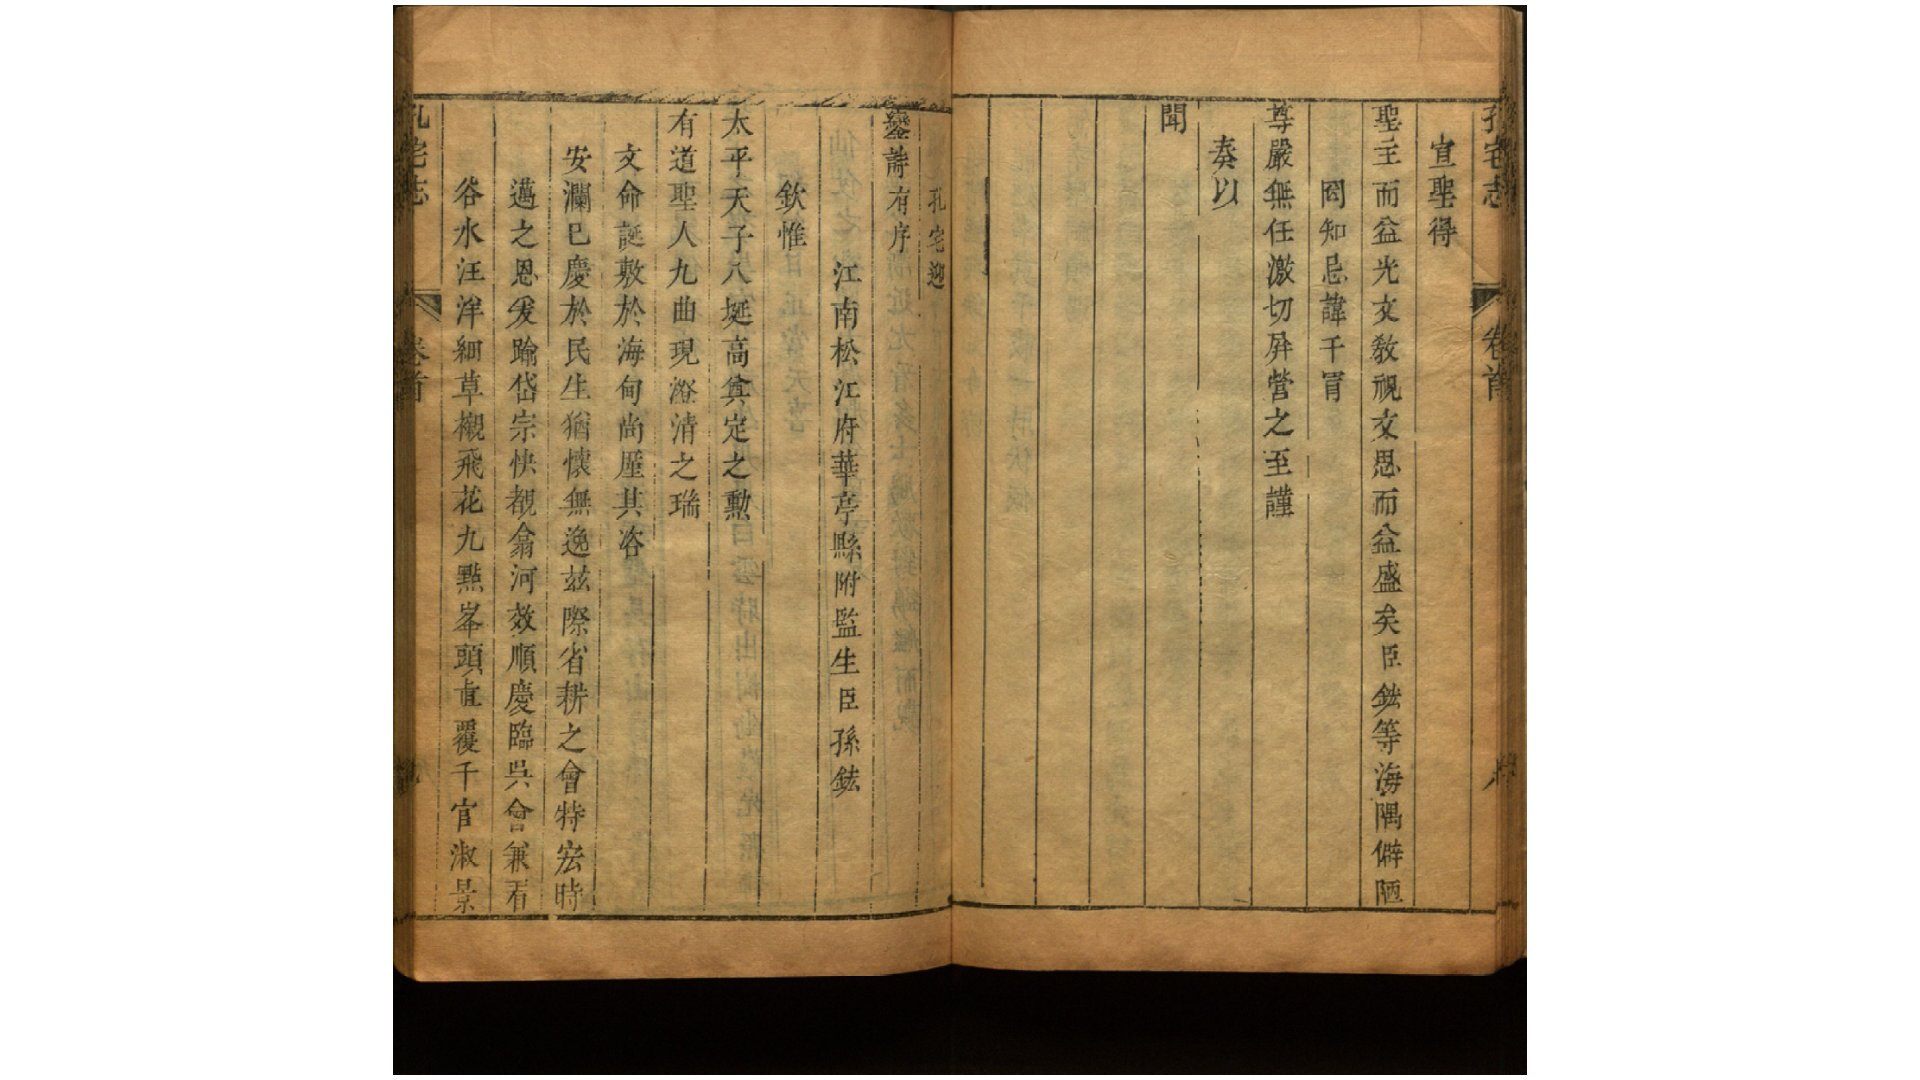 孔宅志 卷首
宣聖得
聖主而益光文教視文思而益盛矣臣鋐等海隅僻陋
罔知忌諱干冒
尊嚴無任激切屏營之至謹
奏以
聞
孔宅迎
鑾詩有序
江南松江府華亭縣附監生臣孫鋐
欽惟
太平天子八埏高奠定之勳
有道聖人九曲現澄清之瑞
文命誕敷於海甸尚厪其咨
安瀾巳慶於民生猶懷無逸玆際省耕之會特宏時
邁之恩爰踰岱宗快覩翕河效順慶臨吳會兼看
谷水汪洋細草襯飛花九點峯頭直覆千官淑景
孔宅志 卷首